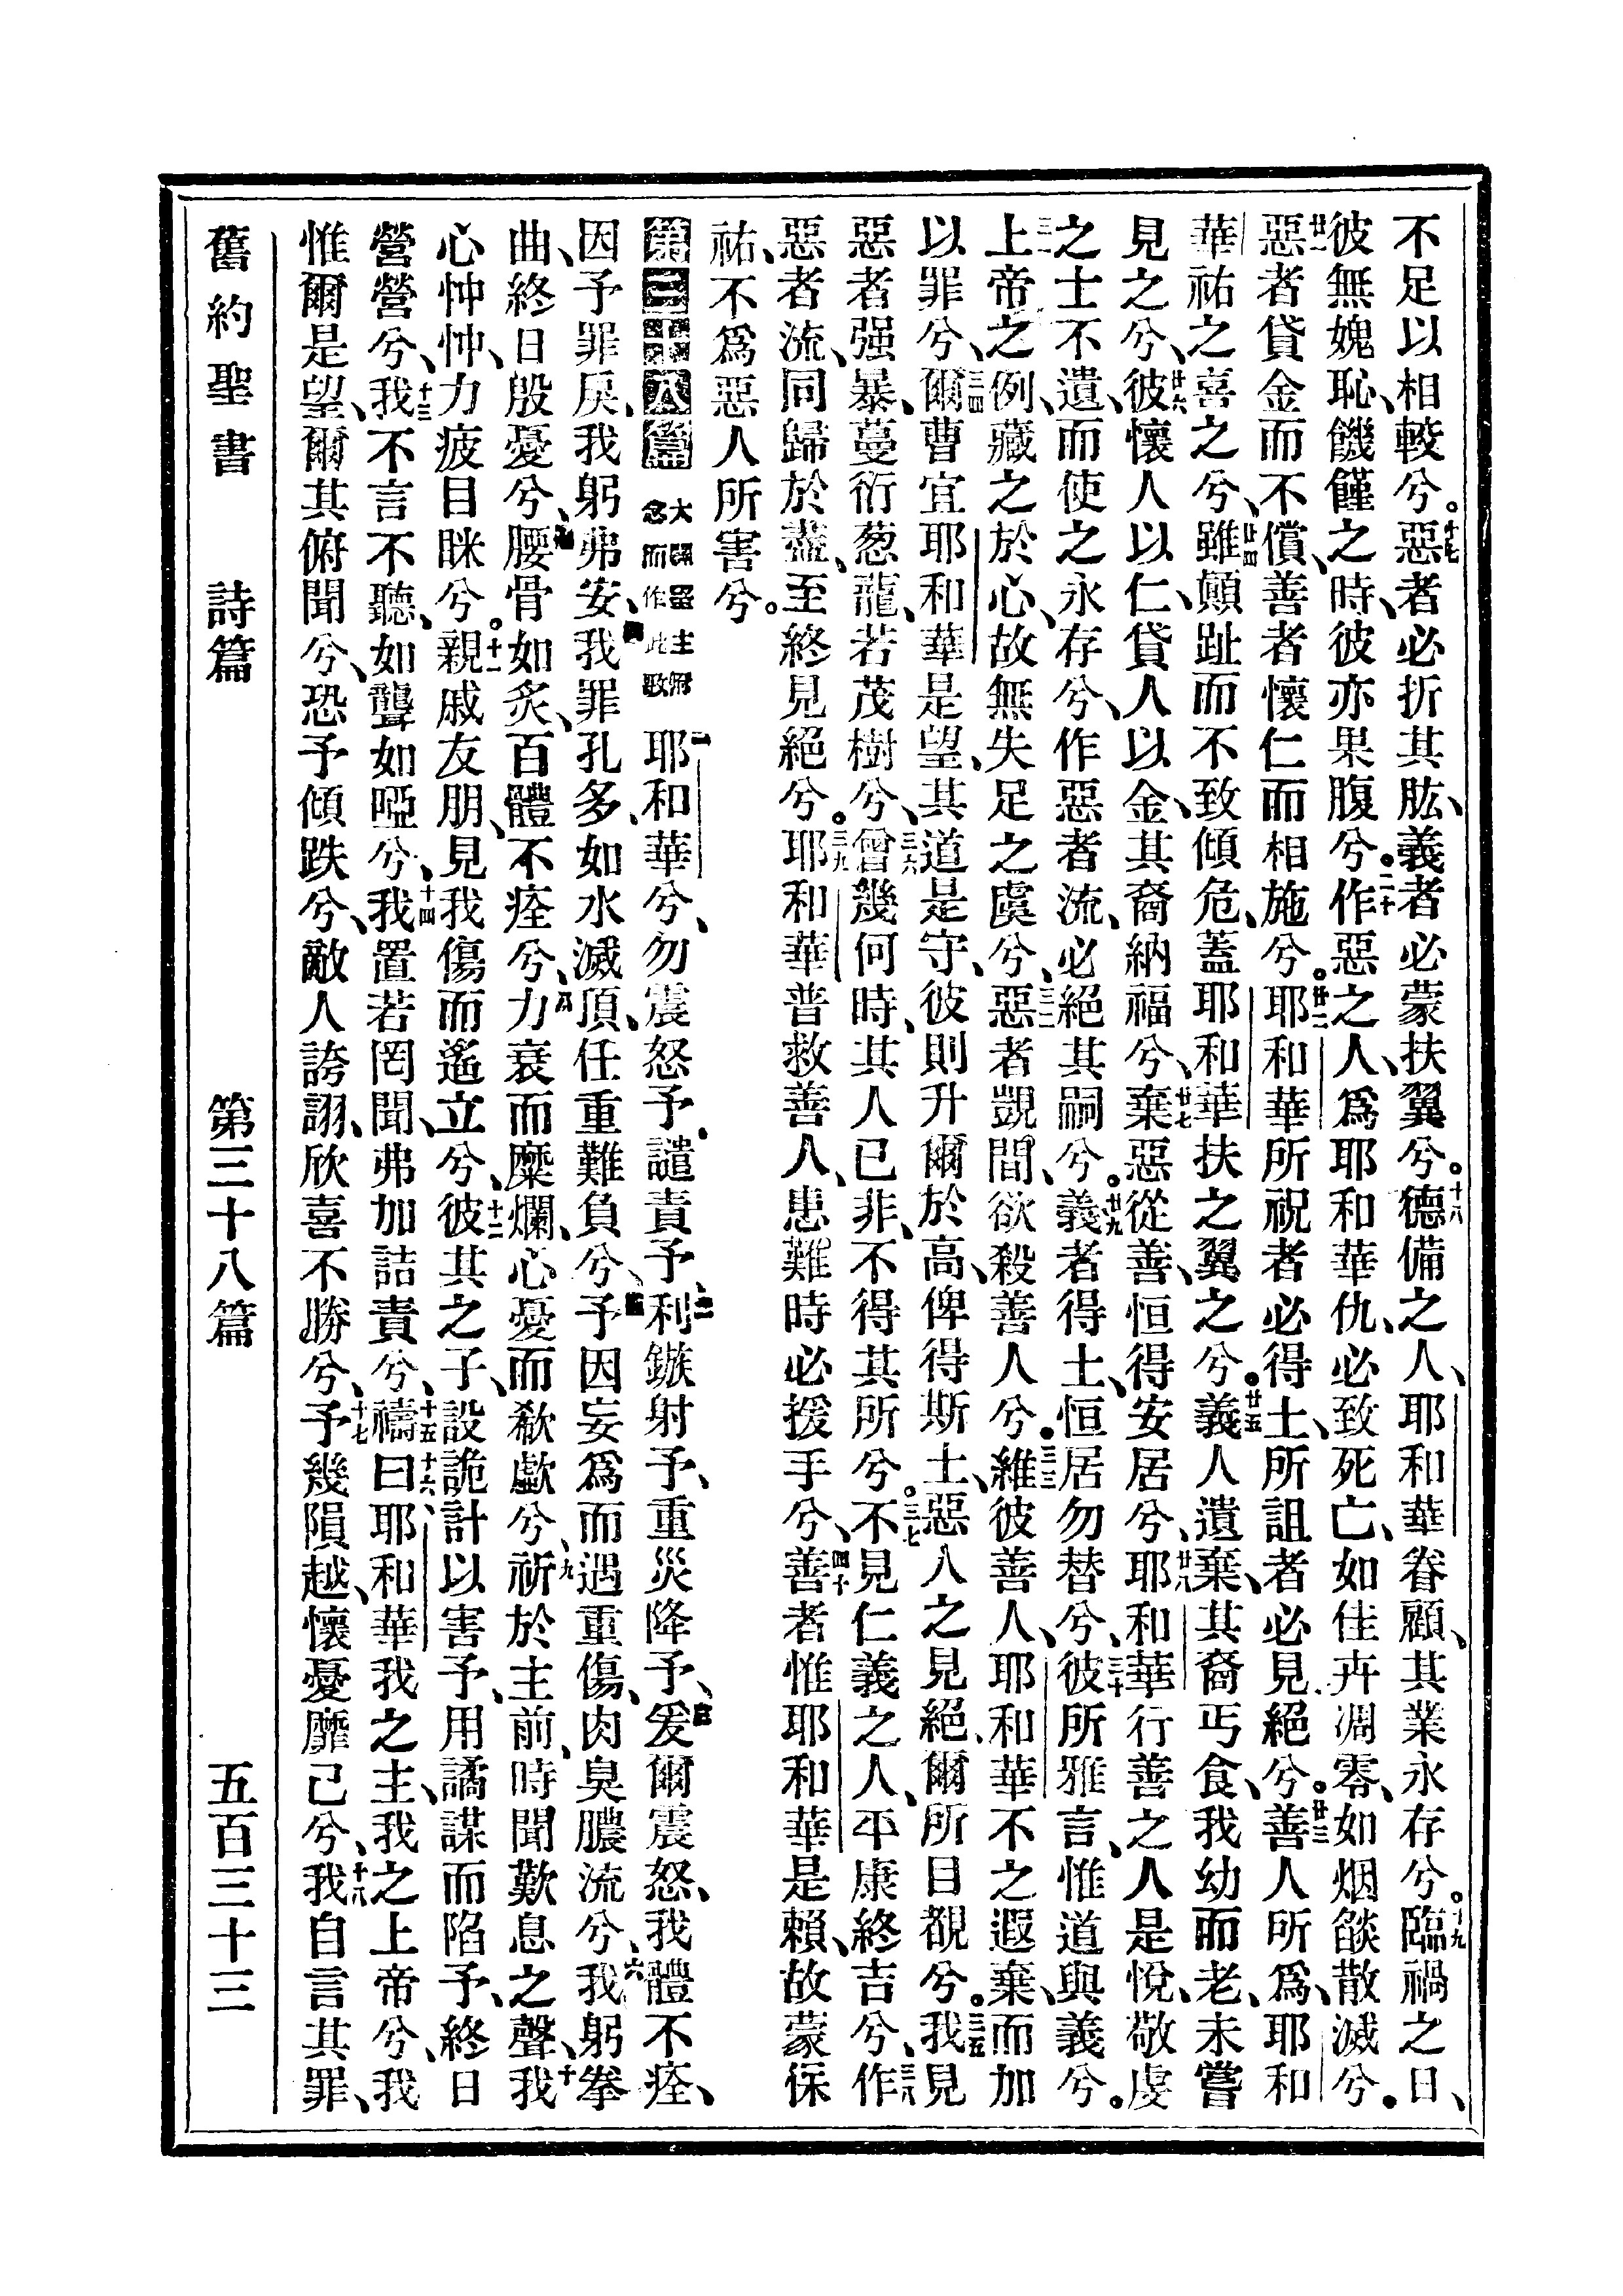 不足以相較兮。十七惡者必折其肱、義者必蒙扶翼兮。十八德備之人、耶和華眷顧、其業永存兮。十九臨禍之日、
彼無媿恥、饑饉之時、彼亦果腹兮。二十作惡之人、爲耶和華仇、必致死亡、如佳卉凋零、如烟燄散滅兮。
廿一惡者貸金而不償、善者懷仁而相施兮。廿二耶和華所祝者必得土、所詛者必見絕兮。廿三善人所爲、耶和
華祐之喜之兮、廿四雖顛趾而不致傾危、蓋耶和華扶之翼之兮。廿五義人遺棄、其裔丐食、我幼而老、未嘗
見之兮、廿六彼懷人以仁、貸人以金、其裔納福兮、廿七棄惡從善、恒得安居兮、廿八耶和華行善之人是悅、敬虔
之士不遺、而使之永存兮、作惡者流、必絕其嗣兮。廿九義者得土、恒居勿替兮、三十彼所雅言、惟道與義兮。
三一上帝之例、藏之於心、故無失足之虞兮、三二惡者覬間、欲殺善人兮。三三維彼善人、耶和華不之遐棄、而加
以罪兮、三四爾曹宜耶和華是望、其道是守、彼則升爾於高、俾得斯土、惡人之見絕、爾所目覩兮。三五我見
惡者强暴、蔓衍葱蘢、若茂樹兮、三六曾幾何時、其人已非、不得其所兮。三七不見仁義之人、平康終吉兮、三八作
惡者流、同歸於盡、至終見絕兮。三九耶和華普救善人、患難時必援手兮、四十善者惟耶和華是賴、故蒙保
祐、不爲惡人所害兮。
第三十八篇 大闢爲主所念而作此歌 一耶和華兮、勿震怒予、譴責予、二利鏃射予、重災降予、三爰爾震怒、我體不痊、
因予罪戾、我躬弗安、四我罪孔多、如水滅頂、任重難負兮、五予因妄爲而遇重傷、肉臭膿流兮、六我躬拳
曲、終日殷憂兮、七腰骨如炙、百體不痊兮、八力衰而糜爛、心憂而欷歔兮、九祈於主前、時聞歎息之聲、十我
心忡忡、力疲目眯兮。十一親戚友朋、見我傷而遙立兮、十二彼其之子、設詭計以害予、用譎謀而陷予、終日
營營兮、十三我不言不聽、如聾如啞兮、十四我置若罔聞、弗加詰責兮、十五禱曰十六、耶和華我之主、我之上帝兮、我
惟爾是望、爾其俯聞兮、恐予傾跌兮、敵人誇詡、欣喜不勝兮、十七予幾隕越、懷憂靡已兮、十八我自言其罪、
舊約聖書 詩篇 第三十八篇 五百三十三